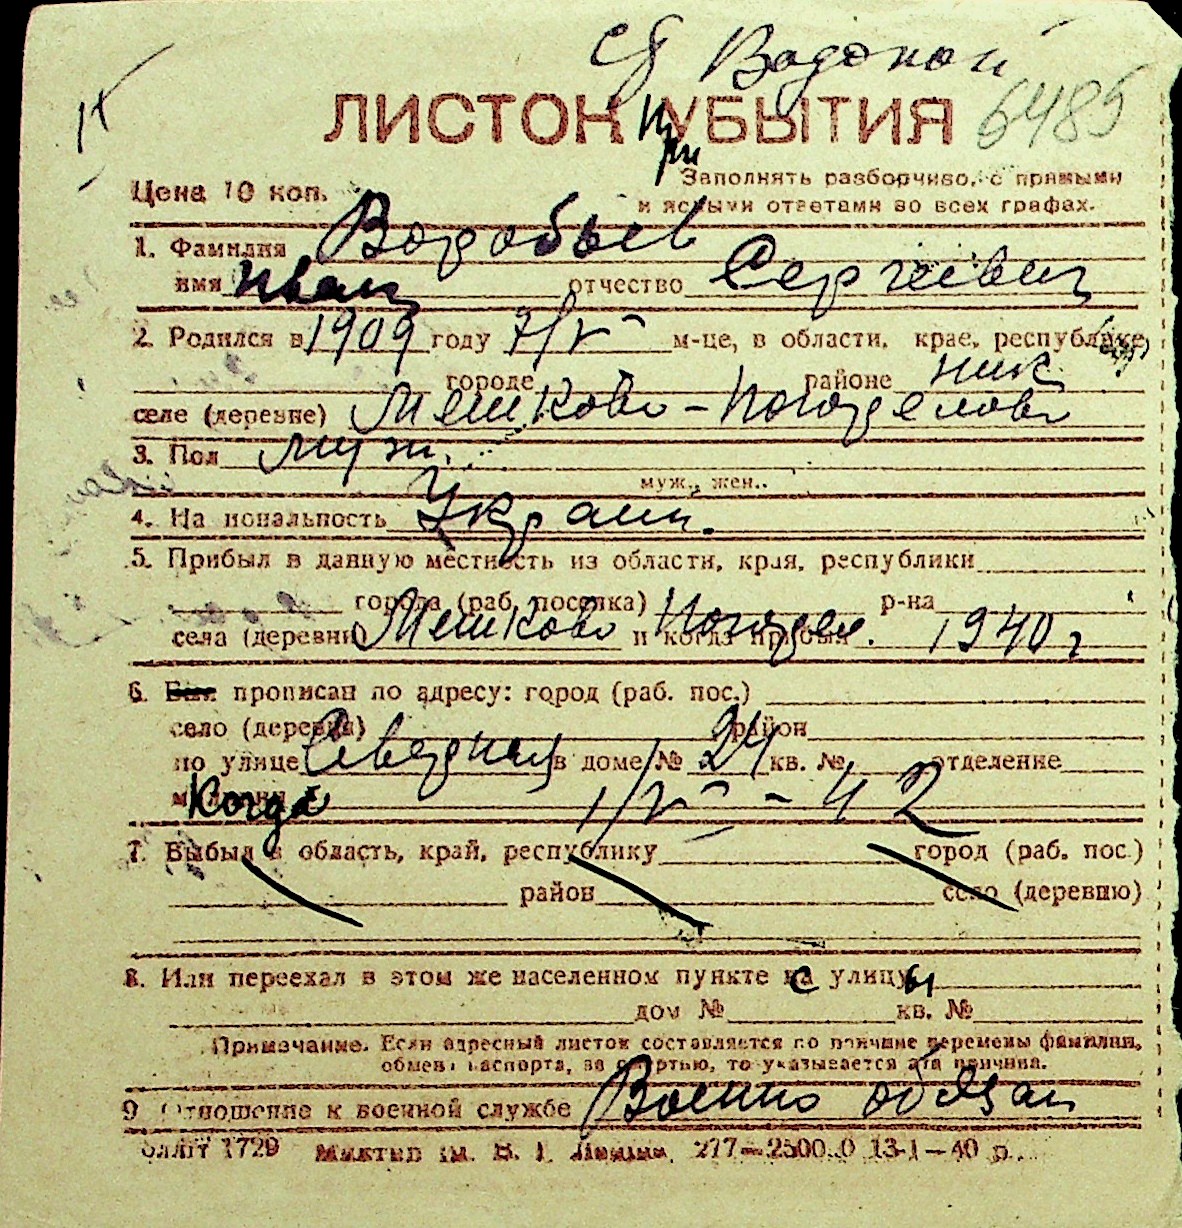 Водопой
ЛИСТОК при УБЫТИЯ 6485
Цена 10 коп.
Заполнять разборчиво, с прямыми
и ясными ответами во всех графах.
1. Фамилия Воробьев
имя Иван отчество Сергеевич
2. Родился в 1909 году 7/V м-це, в области, крае, республике
городе районе Ник
селе (деревне) Мешково-Погорелово
3. Пол муж.
муж., жен..
4. Национальность Украин.
5. Прибыл в данную местность из области, края, республики
города (раб. поселка) р-на
села (деревни) Мешково Погорел. и когда прибыл 1940 г
6. Был прописан по адресу: город (раб. пос.)
село (деревня) район
по улице в доме № 24 кв. № отделение
Когда 1/V - 42
7. Выбыл в область, край, республику город (раб. пос.)
район село (деревню)
8. Или переехал в этом же населенном пункте с улицы
дом № кв. №
Примечание. Если адресный листок составляется по причине перемены фамилии,
обмена паспорта, за смертью, то указывается эта причина.
9. Отношение к военной службе Военно обязан
Обліт 1729 277—2500.0 13-1—40 р.